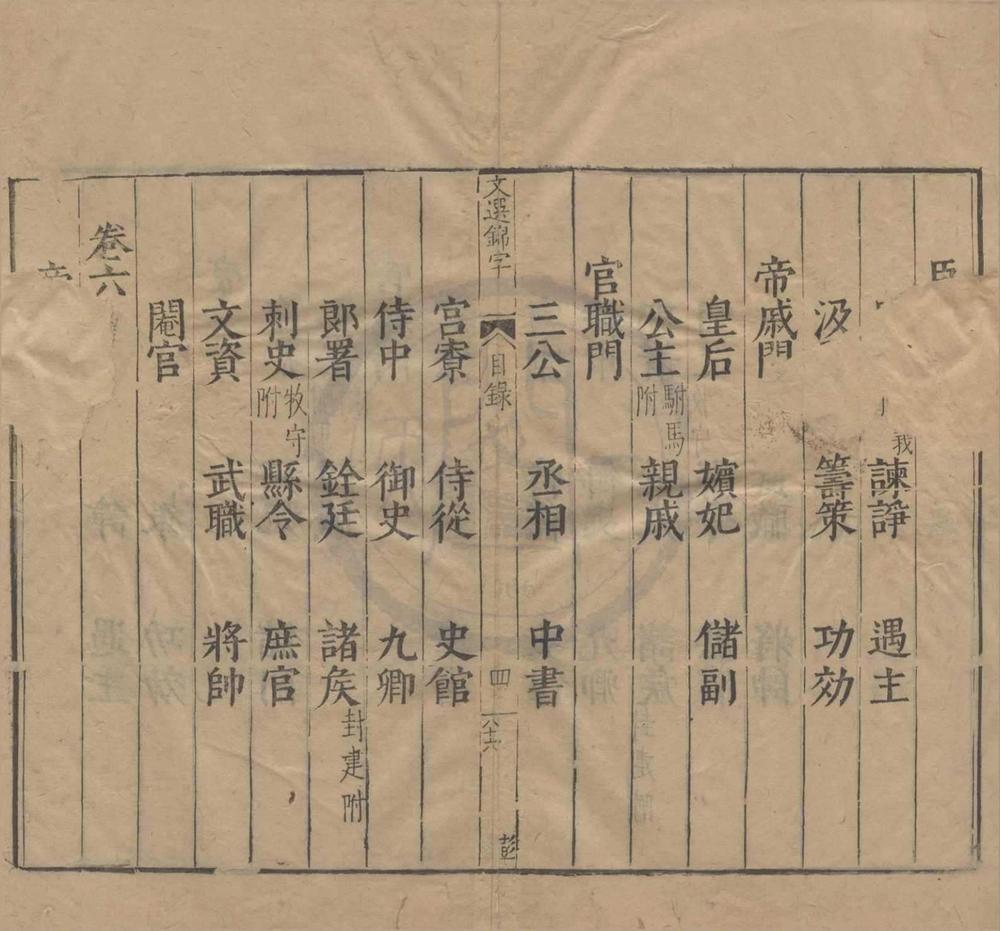 臣
諫諍 遇主
籌策 功効
帝戚門
皇后 嬪妃 儲副
公主駙馬附 親戚
官職門
三公 丞相 中書
文選錦字 目錄 四 彭
宮寮 侍從 史館
侍中 御史 九卿
郎署 銓廷 諸矦封建附
刺史牧守附 縣令 庶官
文資 武職 將帥
閹官
卷六